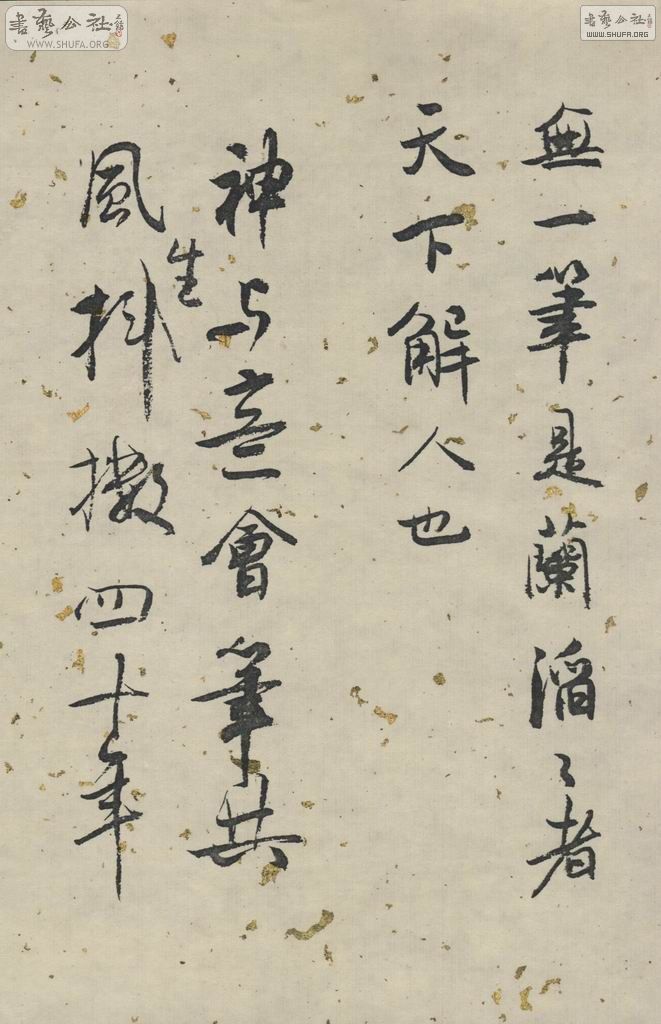 書藝公社
WWW.SHUFA.ORG
書藝公社
WWW.SHUFA.ORG
無一筆是蘭滔〻者
天下解人也
神与意會筆共
生風抖擻四十年